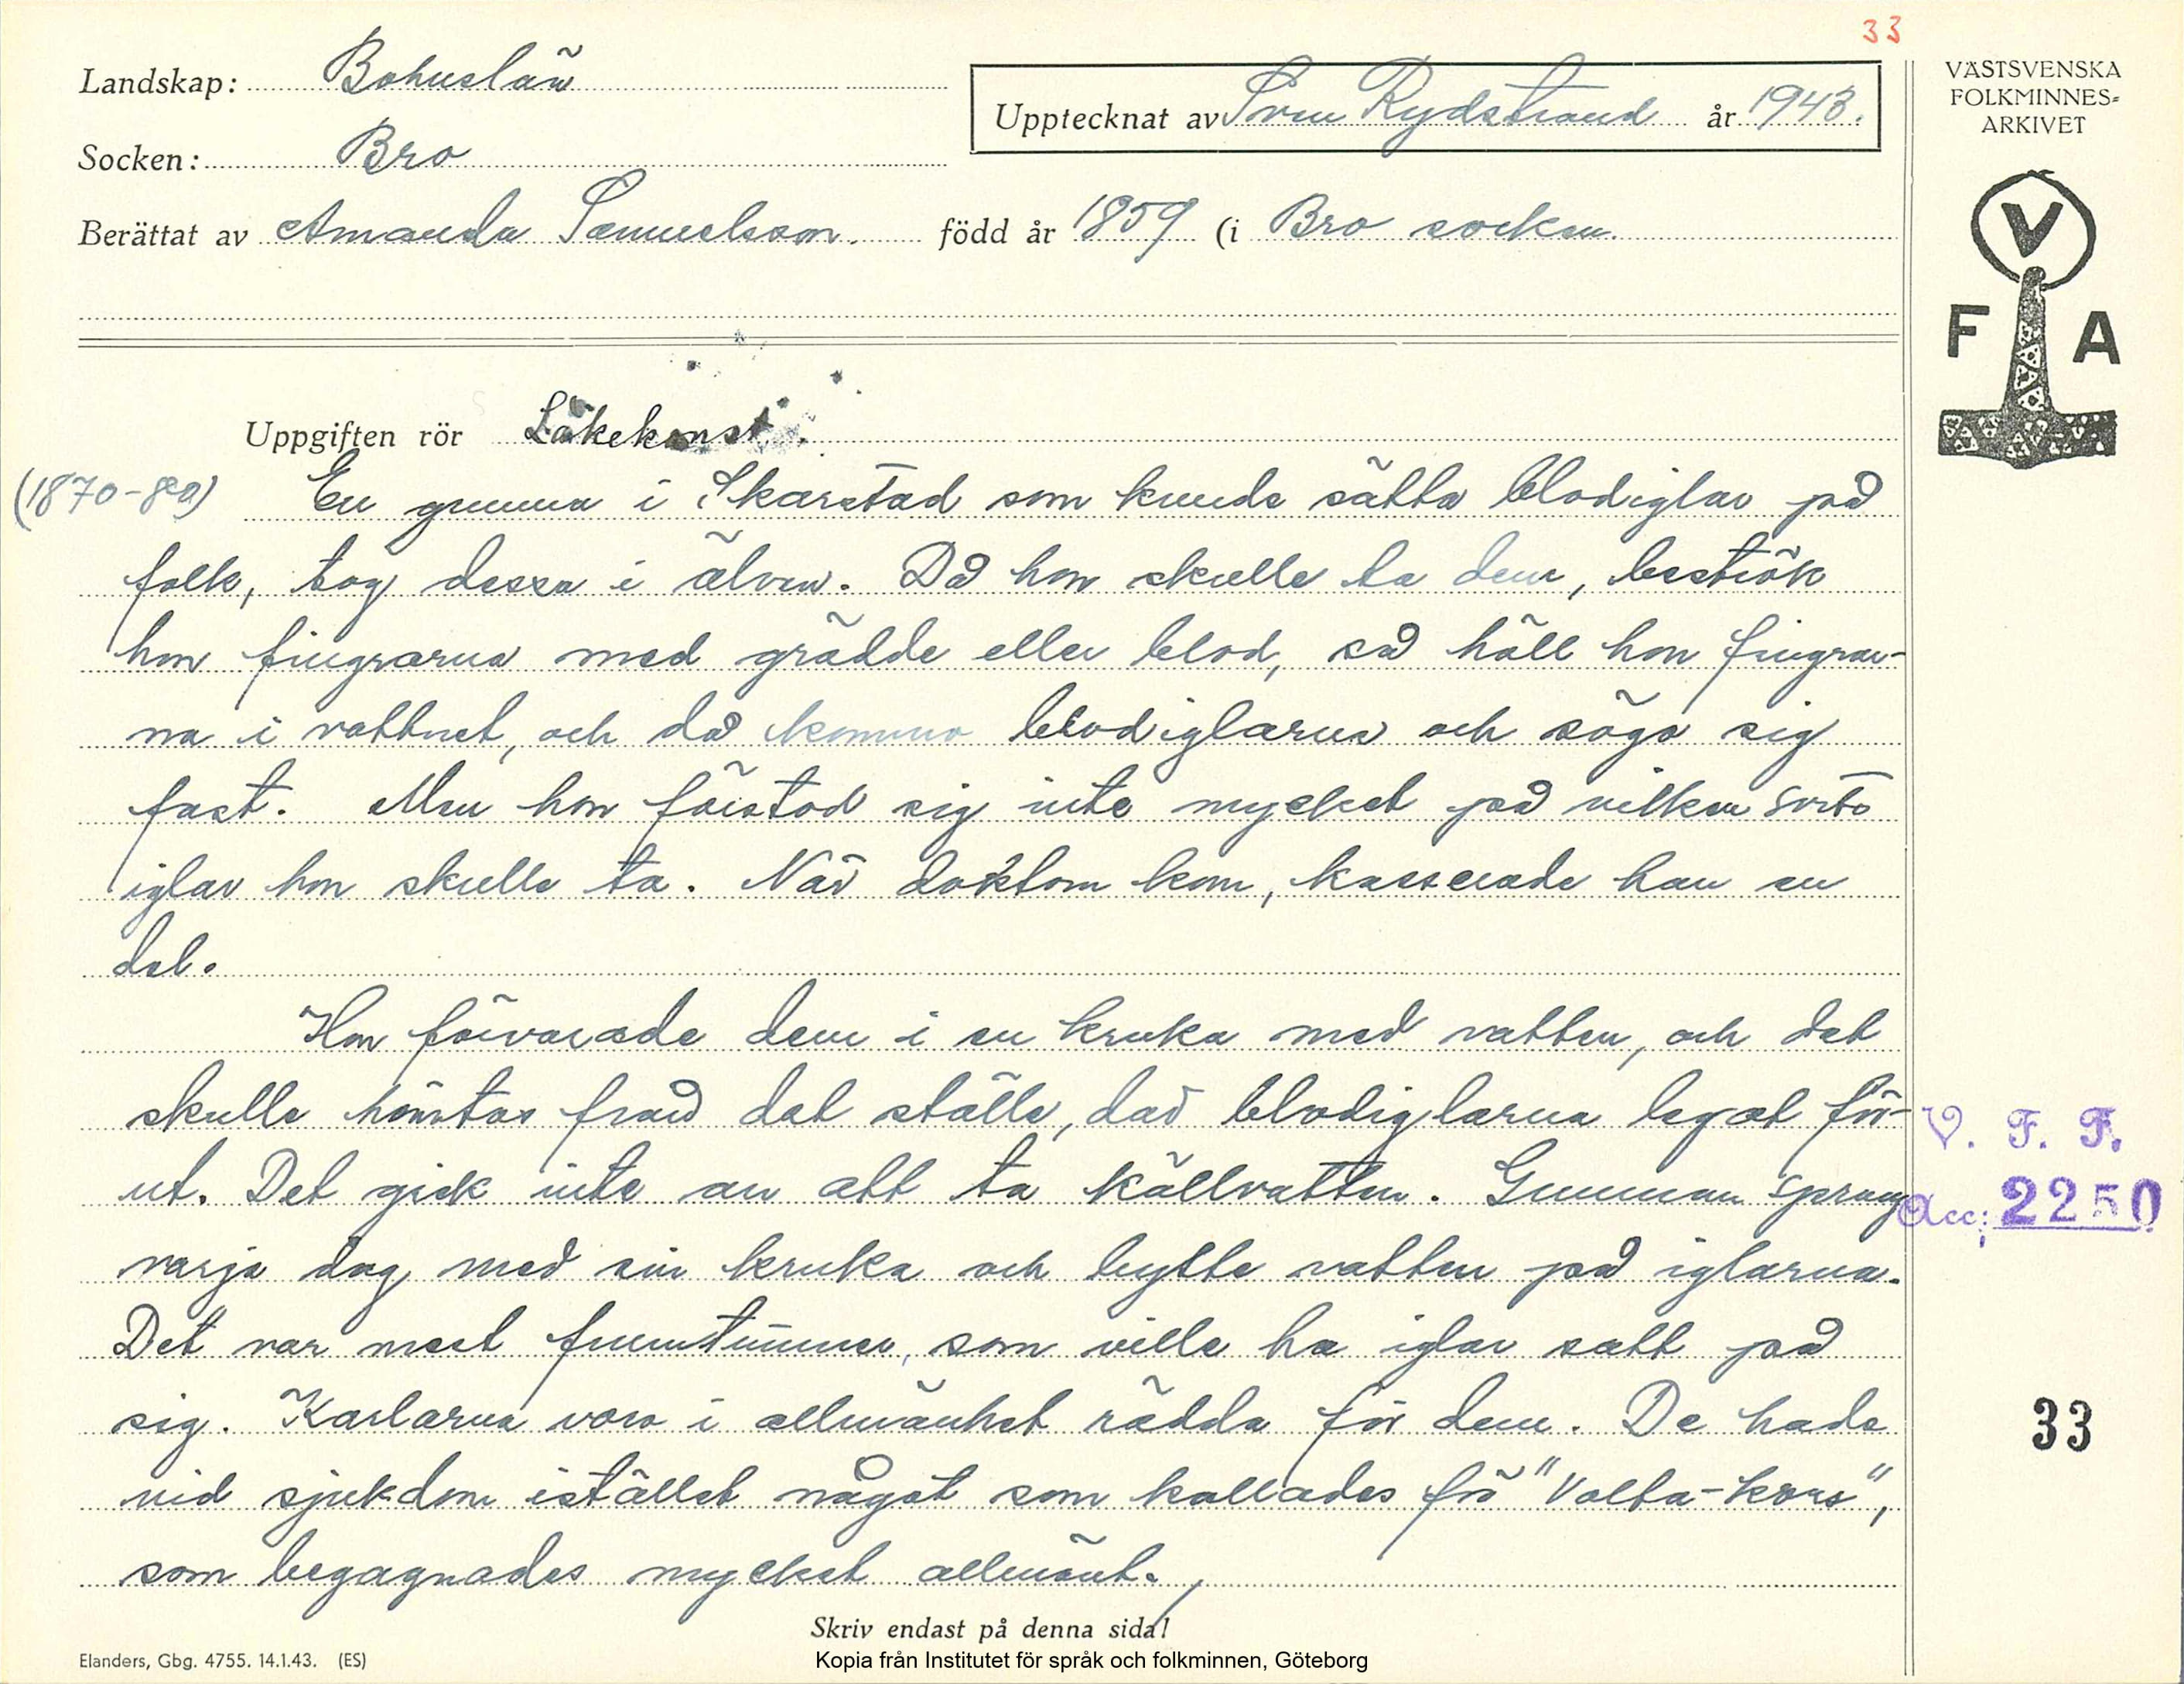 33
Landskap: Bohuslän
Upptecknat av Sven Rydstrand år 1943.
Socken: Bro
Berättat av Amanda Samuelsson. född år 1859 (i Bro socken.
VÄSTSVENSKA
FOLKMINNES-
ARKIVET
V
F A
Uppgiften rör Läkekonst.
(1870-80) En gumma i Skarstad som kunde sätta blodiglar på
folk, tog dessa i älven. Då hon skulle ta dem, beströk
hon fingrarna med grädde eller blod, så höll hon fingrar-
na i vattnet, och då kommo blodiglarna och sögo sig
fast. Men hon förstod sig inte mycket på vilken sorts
iglar hon skulle ta. När doktorn kom, kasserade han en
del.
Hon förvarade dem i en kruka med vatten, och det
skulle hämtas från det ställe, där blodiglarna legat för-
ut. Det gick inte an att ta källvatten. Gumman sprang
varje dag med sin kruka och bytte vatten på iglarna.
Det var mest fruntimmer, som ville ha iglar satt på
sig. Karlarna voro i allmänhet rädda för dem. De hade
vid sjukdom istället något som kallades för "Volta-kors",
som begagnades mycket allmänt.
V. F. F.
Acc: 2250
33
Skriv endast på denna sida!
Elanders, Gbg. 4755. 14.1.43. (ES)
Kopia från Institutet för språk och folkminnen, Göteborg